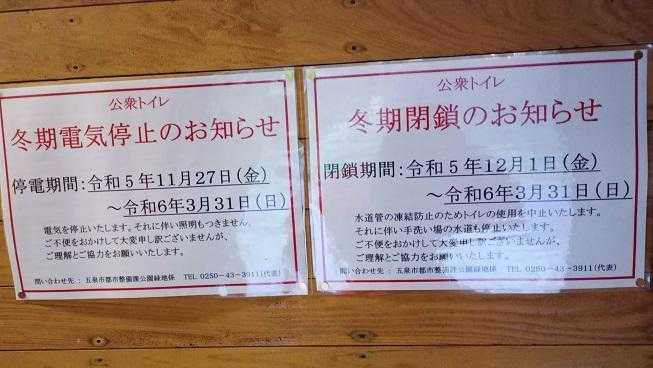 公衆トイレ
冬期電気停止のお知らせ
停電期間:令和5年11月27日(金)
～令和6年3月31日(日)
電気を停止いたします。それに伴い照明もつきません。
ご不便をおかけして大変申し訳ございませんが、
ご理解とご協力をお願いいたします。
問い合わせ先:五泉市都市整備課公園緑地係 TEL 0250-43-3911(代表)
公衆トイレ
冬期閉鎖のお知らせ
閉鎖期間:令和5年12月1日(金)
～令和6年3月31日(日)
水道管の凍結防止のためトイレの使用を中止いたします。
それに伴い手洗い場の水道も停止いたします。
ご不便をおかけして大変申し訳ございませんが、
ご理解とご協力をお願いいたします。
問い合わせ先:五泉市都市整備課公園緑地係 TEL 0250-43-3911(代表)